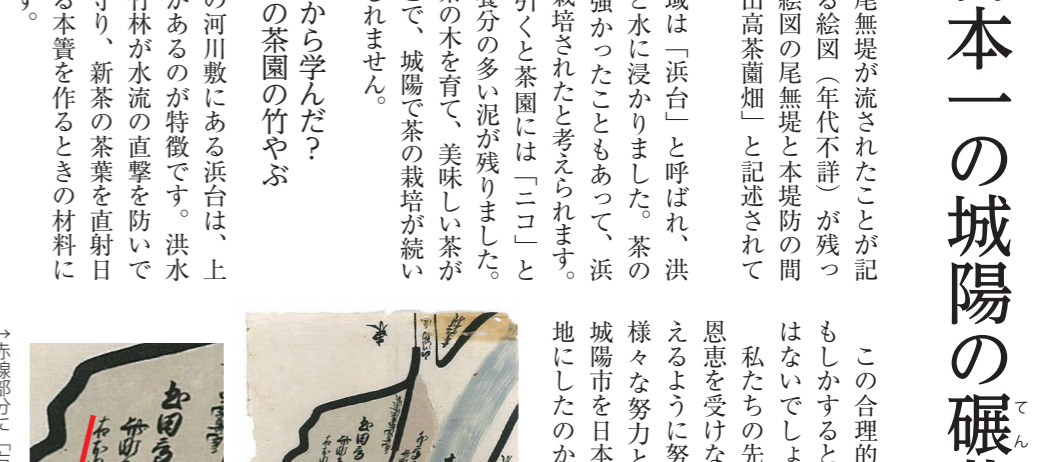 本一の城陽の碾
てん
尾無堤が流されたことが記
る絵図（年代不詳）が残っ
絵図の尾無堤と本堤防の間
出高茶薗畑」と記述されて
域は「浜台」と呼ばれ、洪
と水に浸かりました。茶の
強かったこともあって、浜
栽培されたと考えられます。
引くと茶園には「ニコ」と
養分の多い泥が残りました。
茶の木を育て、美味しい茶が
とで、城陽で茶の栽培が続い
しれません。
から学んだ？
の茶園の竹やぶ
の河川敷にある浜台は、上
があるのが特徴です。洪水
竹林が水流の直撃を防いで
守り、新茶の茶葉を直射日
る本簀を作るときの材料に
す。
この合理的
もしかすると
はないでしょ
私たちの先
恩恵を受けな
えるように努
様々な努力と
城陽市を日本
地にしたのか
東
→赤線部分に「